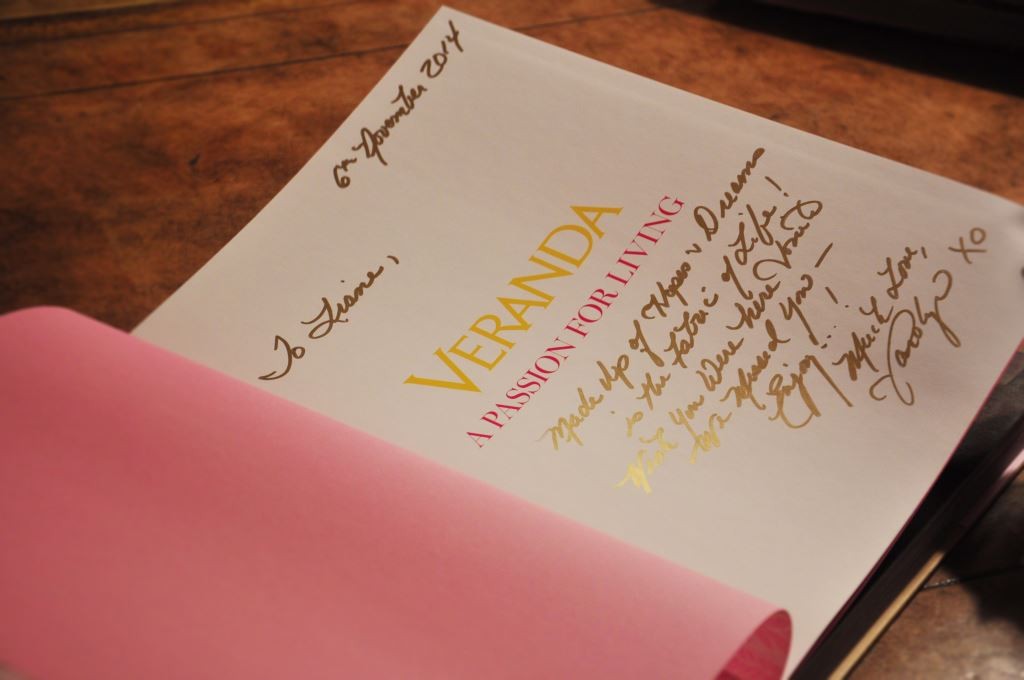 6th November 2014
To Liane,
VERANDA
A PASSION FOR LIVING
Made Up of Hopes & Dreams
is the Fabric of Life!
Wish You Were here
We Missed You –
Enjoy...!
Much Love,
XO